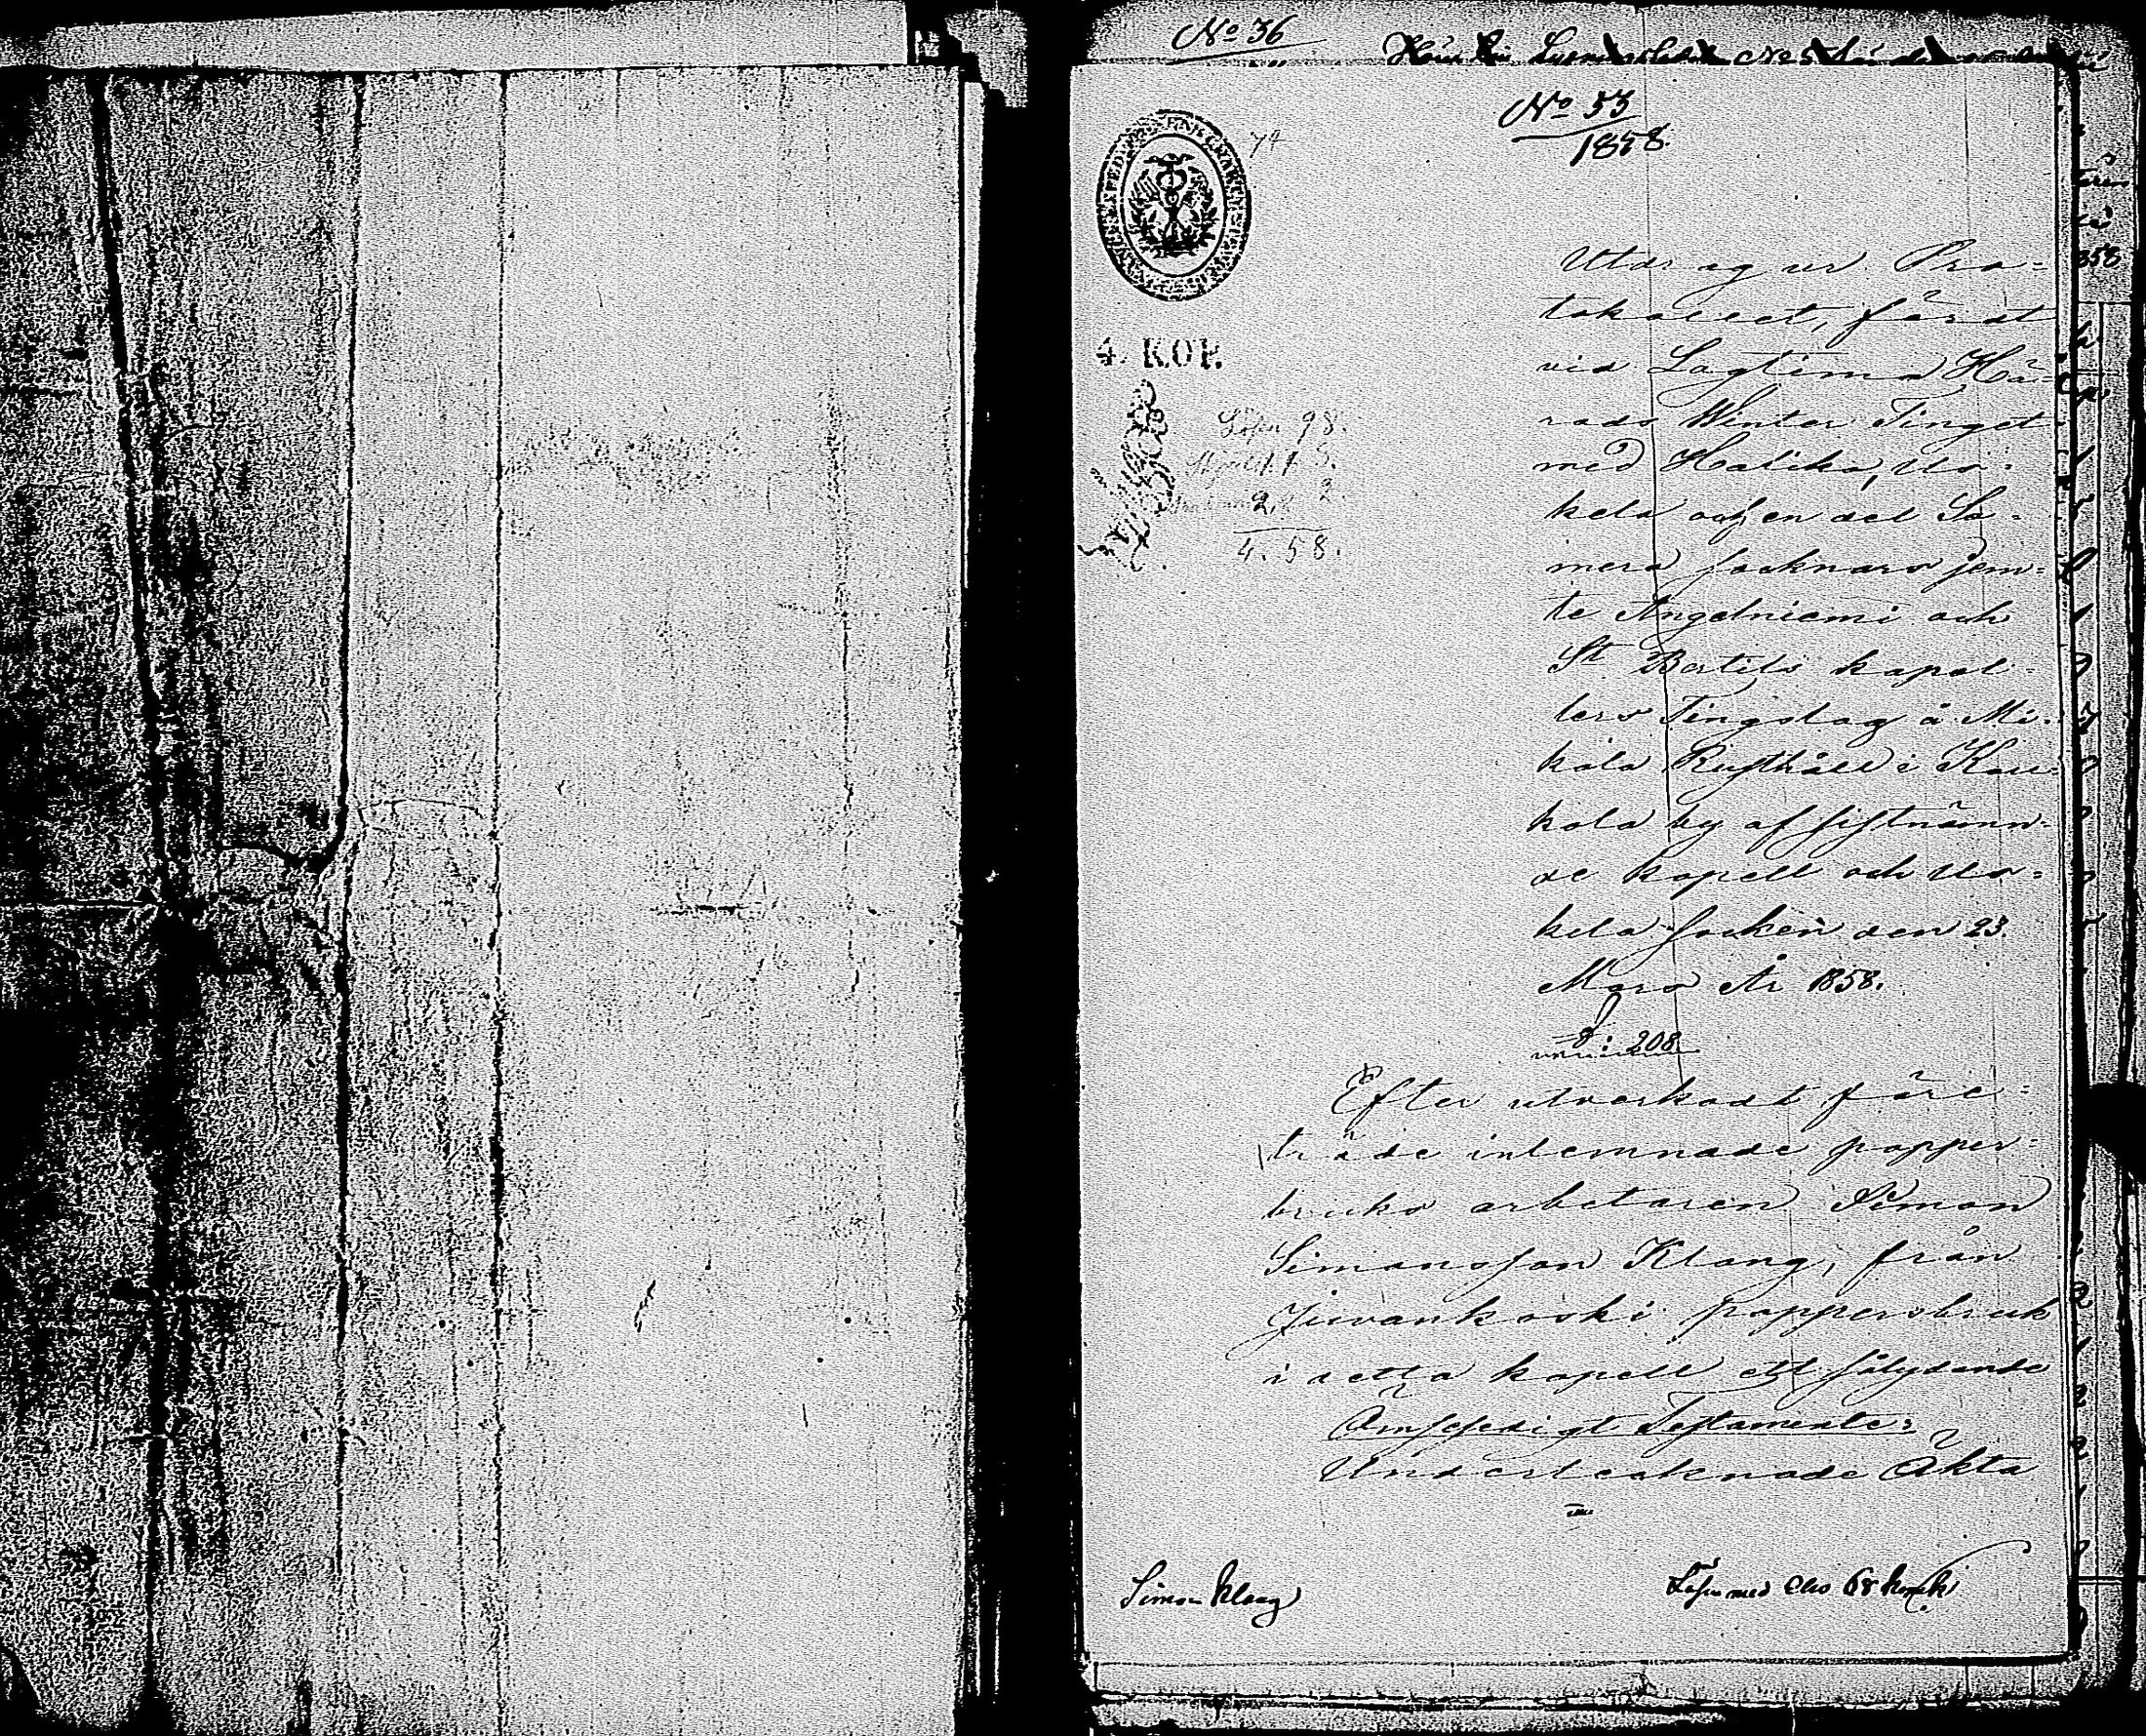 No 36
No 53
1858.
74
4. KOP.
Lösen 98.
1. 5.
2.
4. 58.
Utdrag ur Pro=
tokollet, fördt
vid Lagtima Hä=
rads Winter Tinget
med Halikko, Us=
kela och en del Sa=
mera socknars jem=
te Angelniemi och
St Bertils kapel=
lers Tingslag å Mi=
kola Rusthåll i Kau=
kola by af sistnämn=
de kapell och Us=
kela socken den 23.
Mars År 1858.
§: 208
Efter utverkadt före=
träde inlemnade pappers=
bruks arbetaren Simon
Simonsson Klang, från
Juvankoski pappersbruk
i detta kapell ett sålydande
Ömsesidigt Testamente:
Undertecknade Äkta
Simon Klang
Lösen med Cho 68 kopek